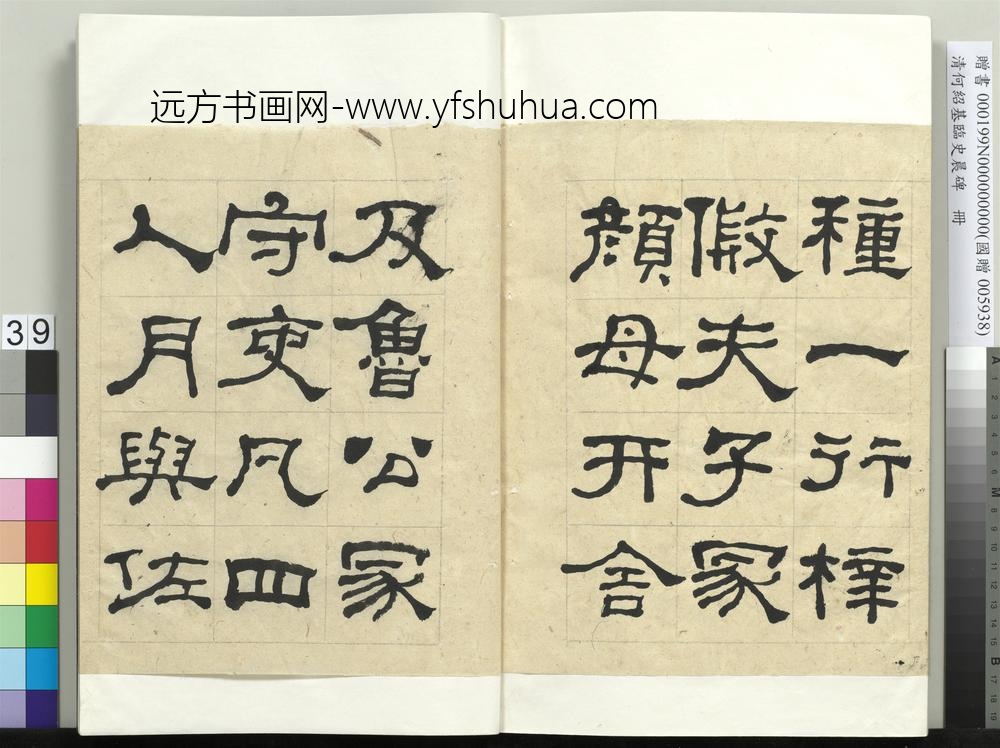 远方书画网-www.yfshuhua.com
種一行梓
假夫子冢
顏母开舍
及魯公冢
守吏凡四
人月與佐
贈書 000199N000000000(國贈 005938)
清何紹基臨史晨碑 冊
39
A 1 2 3 4 5 6 M 8 9 10 11 12 13 14 15 B 17 18 19